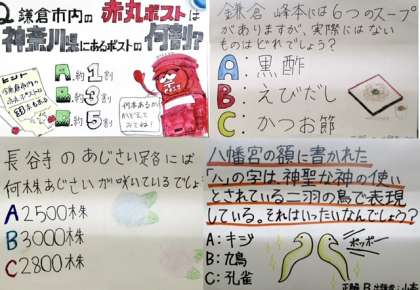 Q 鎌倉市内の赤丸ポストは
神奈川県にあるポストの何割?
ヒント
鎌倉市内の
赤丸ポストの
A 約1割
B 約3割
C 約5割
何本あるか
かぞえて
みてね!
鎌倉 峰本には6つのスープ
がありますが、実際にはない
ものはどれでしょう?
A:黒酢
B:えびだし
C:かつお節
長谷寺のあじさい路には
何株あじさいが咲いているでしょ
A 2500株
B 3000株
C 2800株
八幡宮の額に書かれた
「八」の字は神聖な神の使い
とされている二羽の鳥で表現
している。それはいったいなんでしょう?
A:キジ
B:鳩
C:孔雀
ポッポー
正解 B